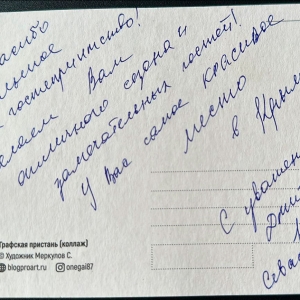 асибо
льное
гостеприимство!
елаем Вам
отличного сезона и
замечательных гостей!
У Вас самое красивое
место
в Крым
С уважен
Дми
Сева
Графская пристань (коллаж)
© Художник Меркулов С.
blogproart.ru onegai87